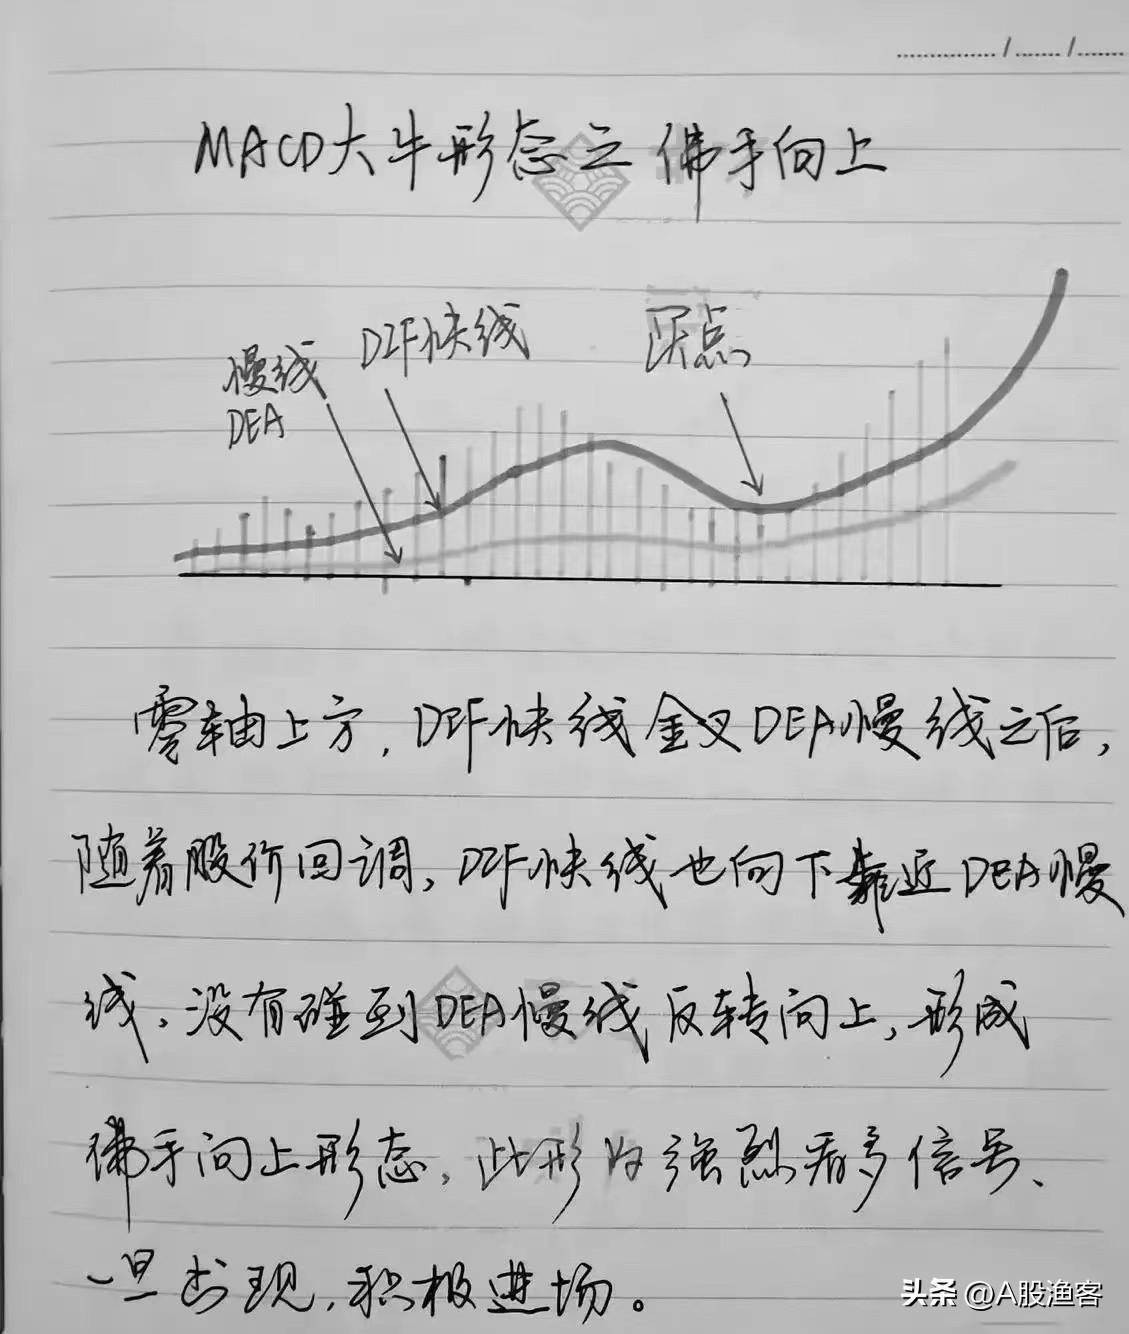 MACD大牛形态之佛手向上
DIF快线
买点
慢线
DEA
零轴上方,DIF快线金叉DEA慢线之后,
随着股价回调,DIF快线也向下靠近DEA慢
线,没有碰到DEA慢线反转向上,形成
佛手向上形态,此形为强烈看多信号、
一旦出现,积极进场。
头条 @A股渔客